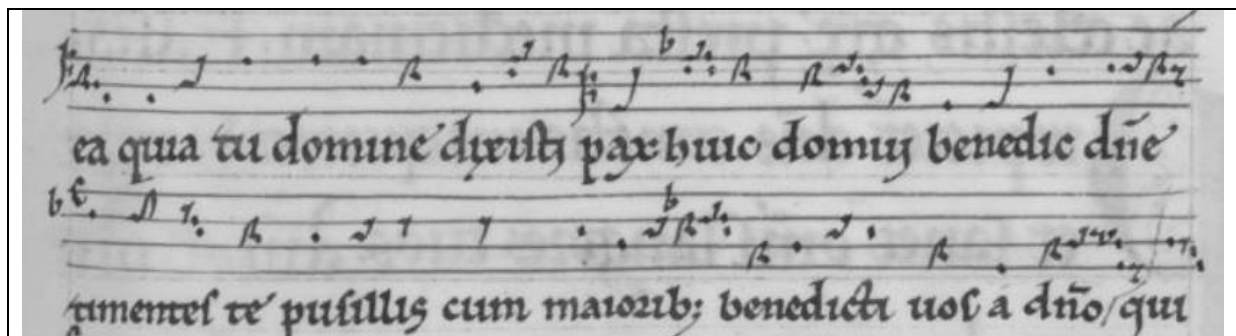 ea quia tu domine dixisti pax huic domui benedic dñe
timentes te pusillis cum maiorib; benedicti uos a dño qui